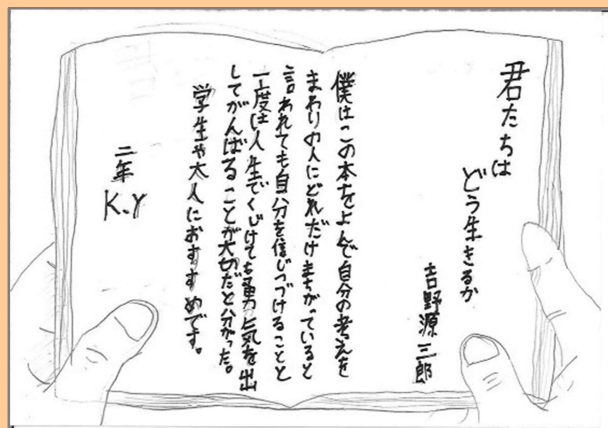 君たちは
どう生きるか
吉野源三郎
僕はこの本をよんで自分の考えを
まわりの人にどれだけまちがっていると
言われても自分を信じつづけることと
一度は人生でくじけても勇気を出
してがんばることが大切だと分かった。
学生や大人におすすめです。
二年
K.Y